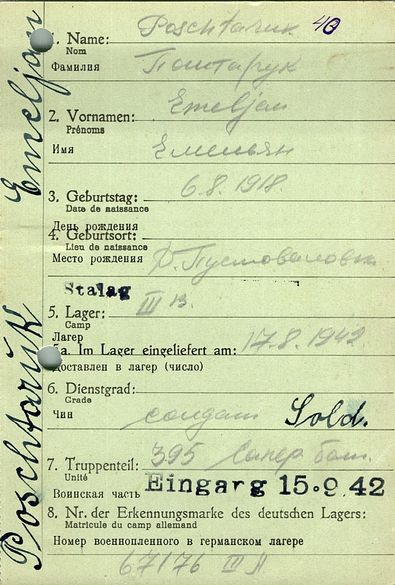 Poschtaruk Emeljan
40
1. Name: Poschtaruk
Nom
Фамилия Поштарук
2. Vornamen: Emeljan
Prénoms
Имя Емельян
3. Geburtstag: 6.8.1918.
Date de naissance
День рождения
4. Geburtsort:
Lieu de naissance
Место рождения
Stalag
5. Lager: III B
Camp
Лагер
5a. Im Lager eingeliefert am: 17.8.1942
Доставлен в лагер (число)
6. Dienstgrad:
Grade
Чин солдат Sold.
7. Truppenteil: 395 Сапер бат.
Unité
Воинская часть Eingang 15.9.42
8. Nr. der Erkennungsmarke des deutschen Lagers:
Matricule du camp allemand
Номер военнопленного в германском лагере
67176 III A